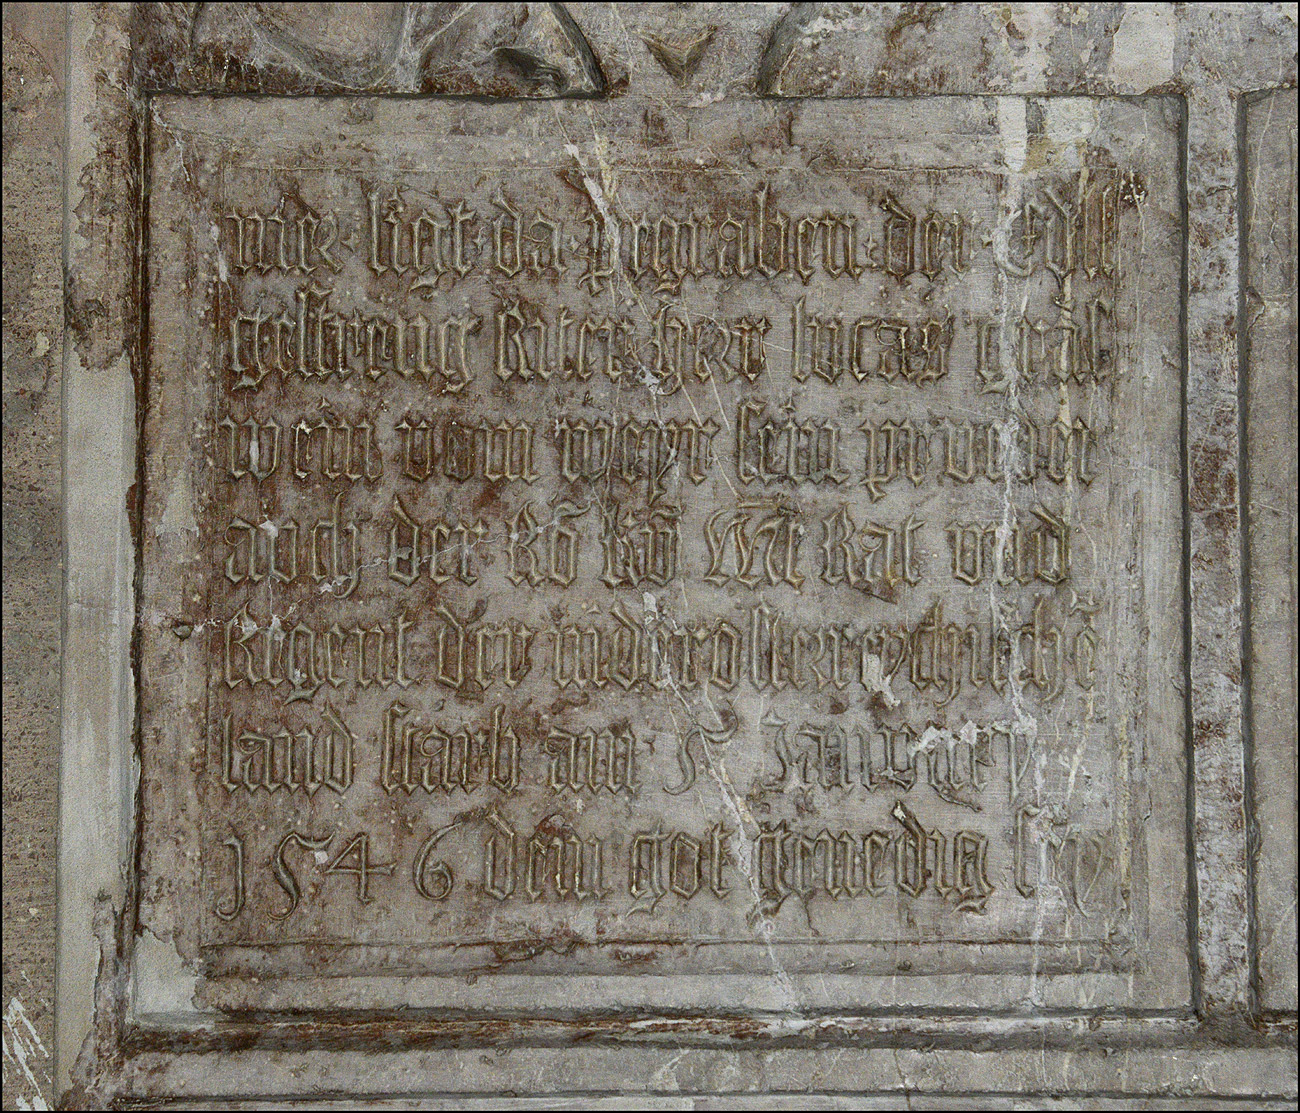 hier · ligt · da · pegraben · der · Edl
gestreng Riter her lucas gräs
wein vom weyr sein
auch der Rö kö Mt Rat vnd
Regent der niderosterreychischē
land starb am 5 Januarj
1546 dem got genedig sey